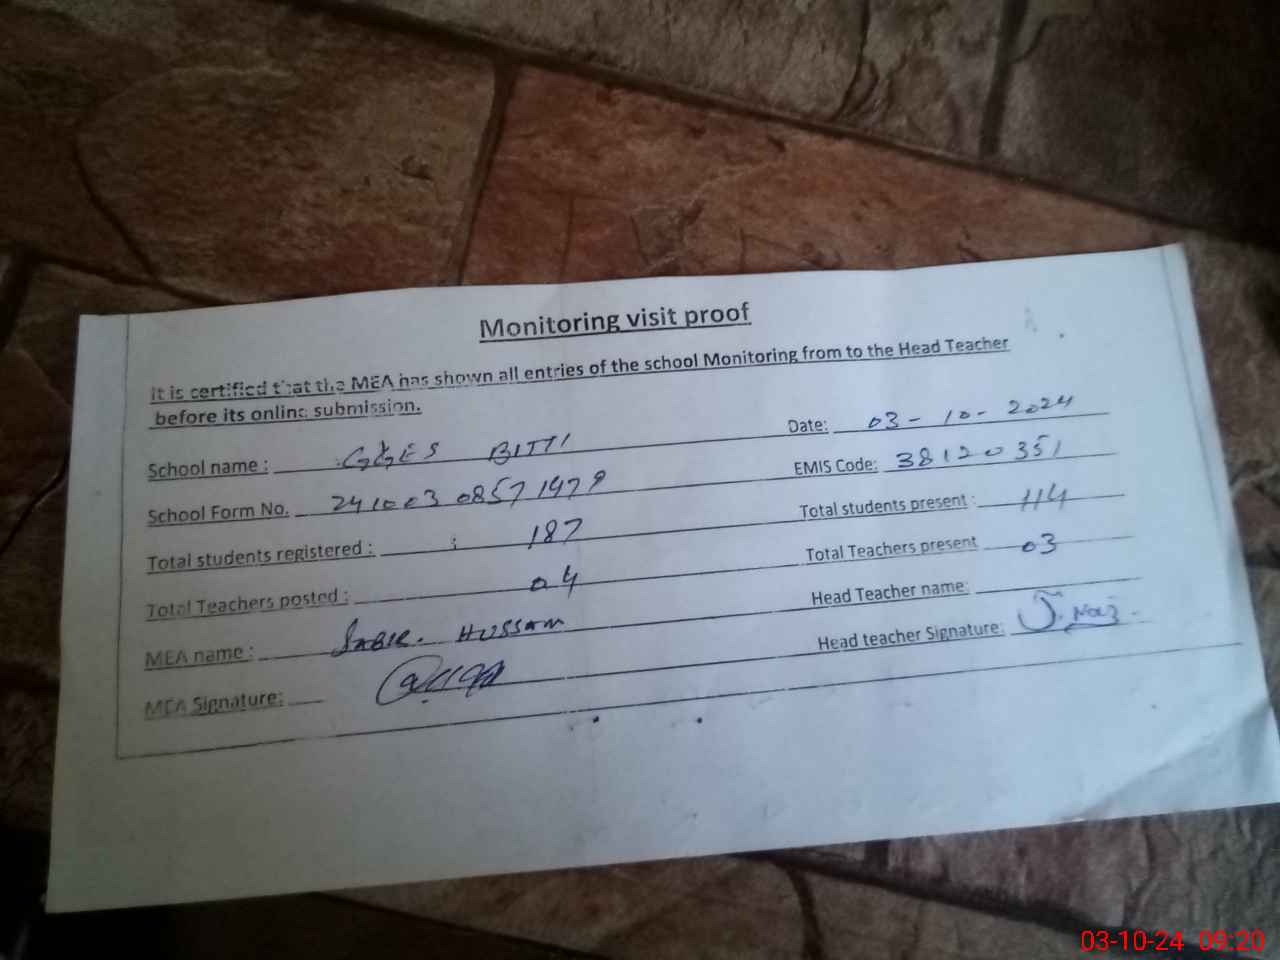 Monitoring visit proof
It is certified that the MEA has shown all entries of the school Monitoring from to the Head Teacher
before its online submission.
School name : GGES BITTI Date: 03-10-2024
School Form No. 241003 08571979 EMIS Code: 38120351
Total students registered : 187 Total students present : 114
Total Teachers posted : 04 Total Teachers present 03
MEA name : SABIR HUSSAIN Head Teacher name:
MEA Signature: Head teacher Signature: S. Naz
03-10-24 09:20